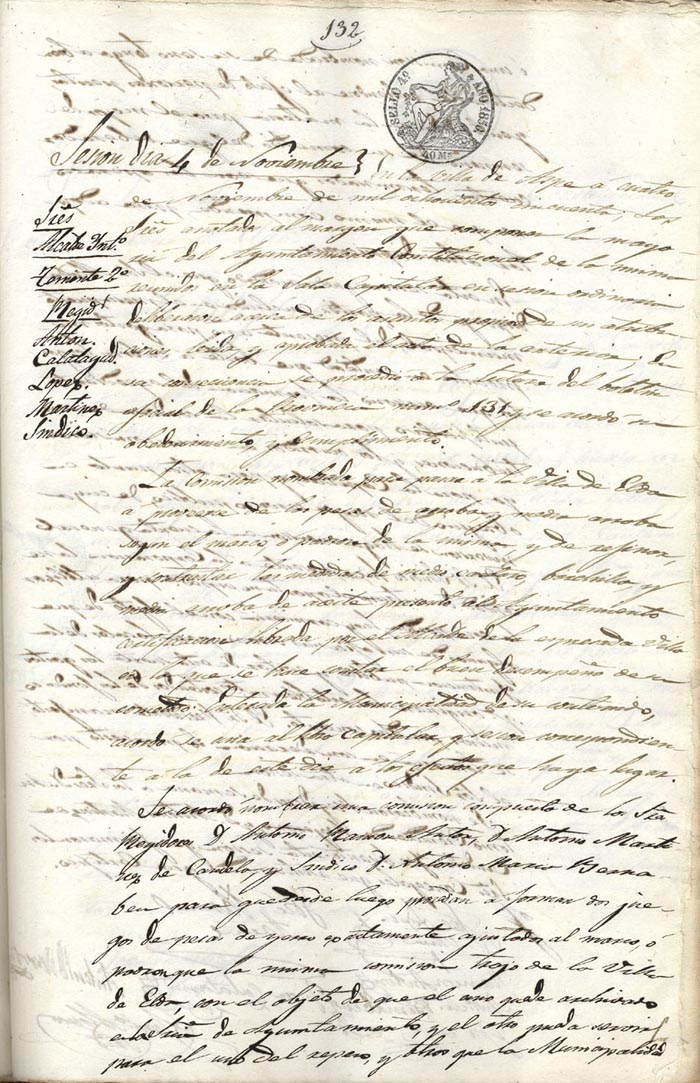 132
SELLO 4º AÑO 1850
40 Ms
Sesion dia 4 de Noviembre} En la Villa de Aspe a cuatro
de Noviembre de mil ochocientos cincuenta; Los
Sres anotados al margen que componen la mayo
ria del Ayuntamiento Constitucional de la misma
reunidos en la Sala Capitular en sesion ordinaria
deliberaron acerca de los asuntos propios de sus atribu
ciones, leida y aprobada el acta de la anterior; en
su consecuencia se procedio a la lectura del boletin
oficial de la Provincia numº 131 y se acordó su
obedecimiento, y cumplimiento.
Sres
Alcalde Intº
Teniente 2º
Regid.
Anton.
Calatayud.
Lopez.
Martinez
Sindico.
La Comision nombrada para pasar a la Villa de Elda
a proveerse de las pesas de arroba y media arroba
segun el marco o padron de la misma, y de refinar,
y contrastar las medidas de medio cantaro, barchilla, y
media arroba de aceite presentó al Ayuntamiento
certificacion librada por el Alcalde de la espresada Villa
en la que se hace constar el buen desempeño de su
cometido: Enterada la Municipalidad de su contenido,
acordó se una al libro capitular, y sesion correspondien
te a la de este dia a los efectos que haya lugar.
Se acordó nombrar una comision compuesta de los Sres
Regidores D. Antonio Ramon Anton, D. Antonio Marti
nez de Candela y Sindico D. Antonio Mario Berna
beu para que desde luego procedan a formar dos jue
gos de pesas de yerro exactamente ajustados al marco, ó
padron que la misma comision trajo de la Villa
de Elda, con el objeto de que el uno quede archivado
en la Sria de Ayuntamiento, y el otro pueda servir
para el uso del repeso, y otros que la Municipalidad